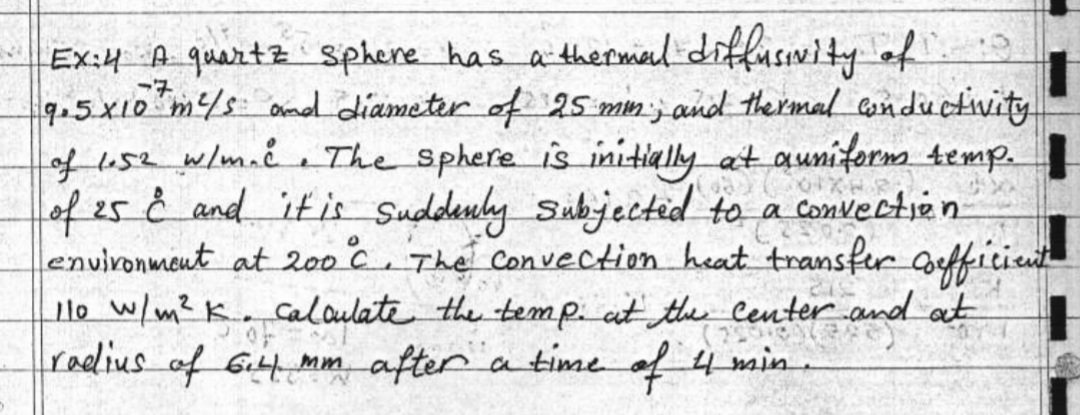 Ex:4 A quartz sphere has a thermal diffusivity of
9.5x10⁻⁷ m²/s and diameter of 25 mm; and thermal conductivity
of 1.52 w/m.c̊ . The sphere is initially at auniform temp.
of 25 c̊ and it is suddenly subjected to a convection
environment at 200 c̊ . The convection heat transfer coefficient
110 w/m² K . calculate the temp. at the center and at
radius of 6.4 mm after a time of 4 min .